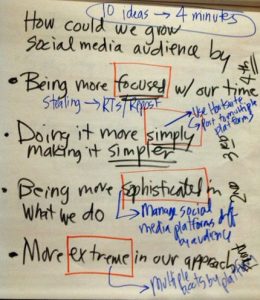 10 ideas → 4 minutes
How could we grow
social media audience by
• Being more focused w/ our time
Stealing → RTs/Repost
4th
• Doing it more simply
making it simpler
Use Hootsuite
Post to multiple
platforms
3rd
• Being more sophisticated in
what we do
2nd
Manage social
media platforms diff
by audience
• More extreme in our approach
multiple
posts by platform